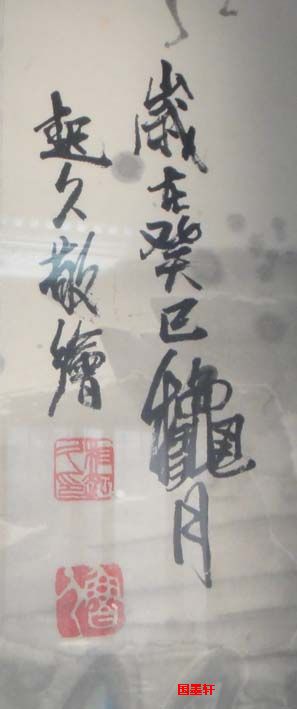 歲在癸巳龝月
起久敬繪
国墨轩